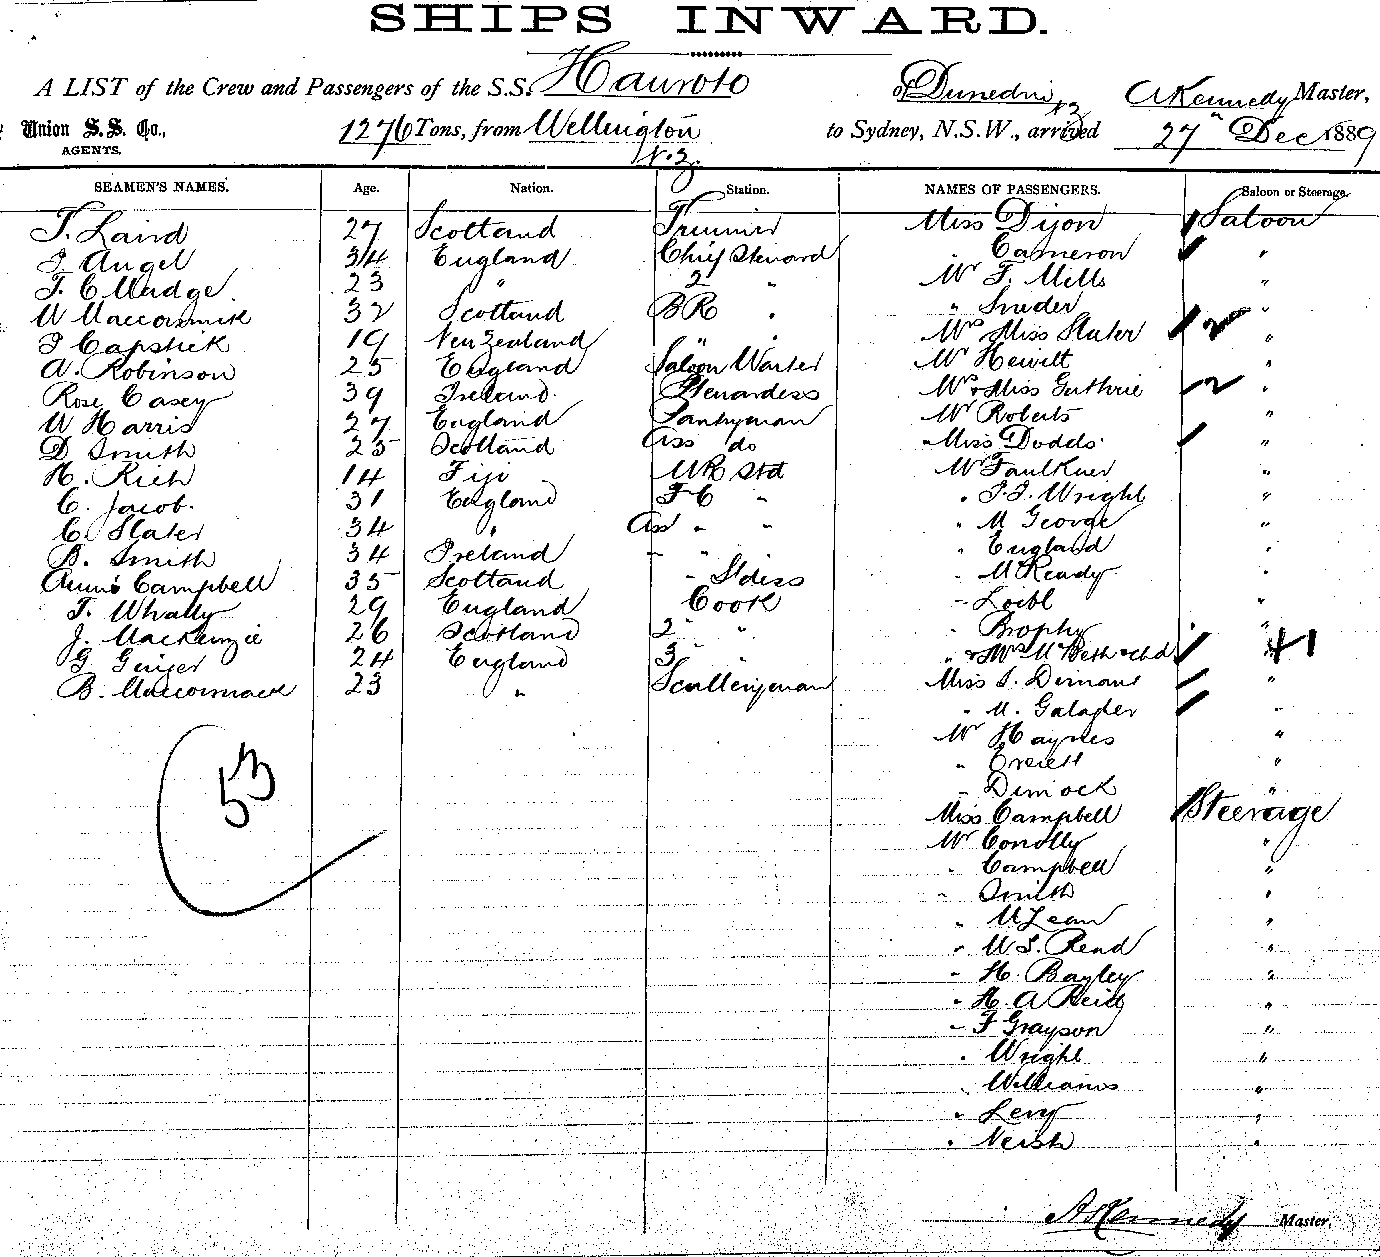 SHIPS INWARD.
A LIST of the Crew and Passengers of the S.S. Hauroto of Dunedin NZ A Kennedy Master,
Union S.S. Co., AGENTS. 1276 Tons, from Wellington N.Z. to Sydney, N.S.W., arrived 27" Dec 1889
SEAMEN'S NAMES. Age. Nation. Station. NAMES OF PASSENGERS. Saloon or Steerage.
T. Laird 27 Scotland Trimmer Miss Dixon Saloon
J Angel 34 England Chief Steward " Cameron "
T. C Madge 23 " 2 " Mr F. Mills "
W Maccormick 32 Scotland B R " " Snider "
J Capstick 19 New Zealand " " Mrs Miss Slater 2 "
A. Robinson 25 England Saloon Waiter Mr Hewitt "
Rose Casey 39 Ireland Stewardess Mrs & Miss Guthrie 2 "
W Harris 27 England Pantryman Mr Roberts "
D Smith 25 Scotland Ass do Miss Dodds "
H. Rich 14 Fiji M R Std Mr Faulkner "
C. Jacob. 31 England F C " " J. J. Wright "
C. Slater 34 " Ass " " " M George "
B. Smith 34 Ireland " " " England "
Annie Campbell 35 Scotland " Stdess " McReady "
T. Whally 29 England Cook " Loibl "
J. Mackenzie 26 Scotland 2 " " Brophy "
G Ginger 24 England 3 " " & Mrs McBeth & chd " +1
B. Maccormack 23 " Sculleryman Miss S. Dimant "
" M. Galagher "
Mr Haynes "
53 " Everett "
" Dimock "
Miss Campbell Steerage
Mr Conolly "
" Campbell "
" Smith "
" McLean "
" W. S. Read "
" H. Bayley "
" H. A Reid "
" F Grayson "
" Wright "
" Williams "
" Levy "
" Neish "
A Kennedy Master.